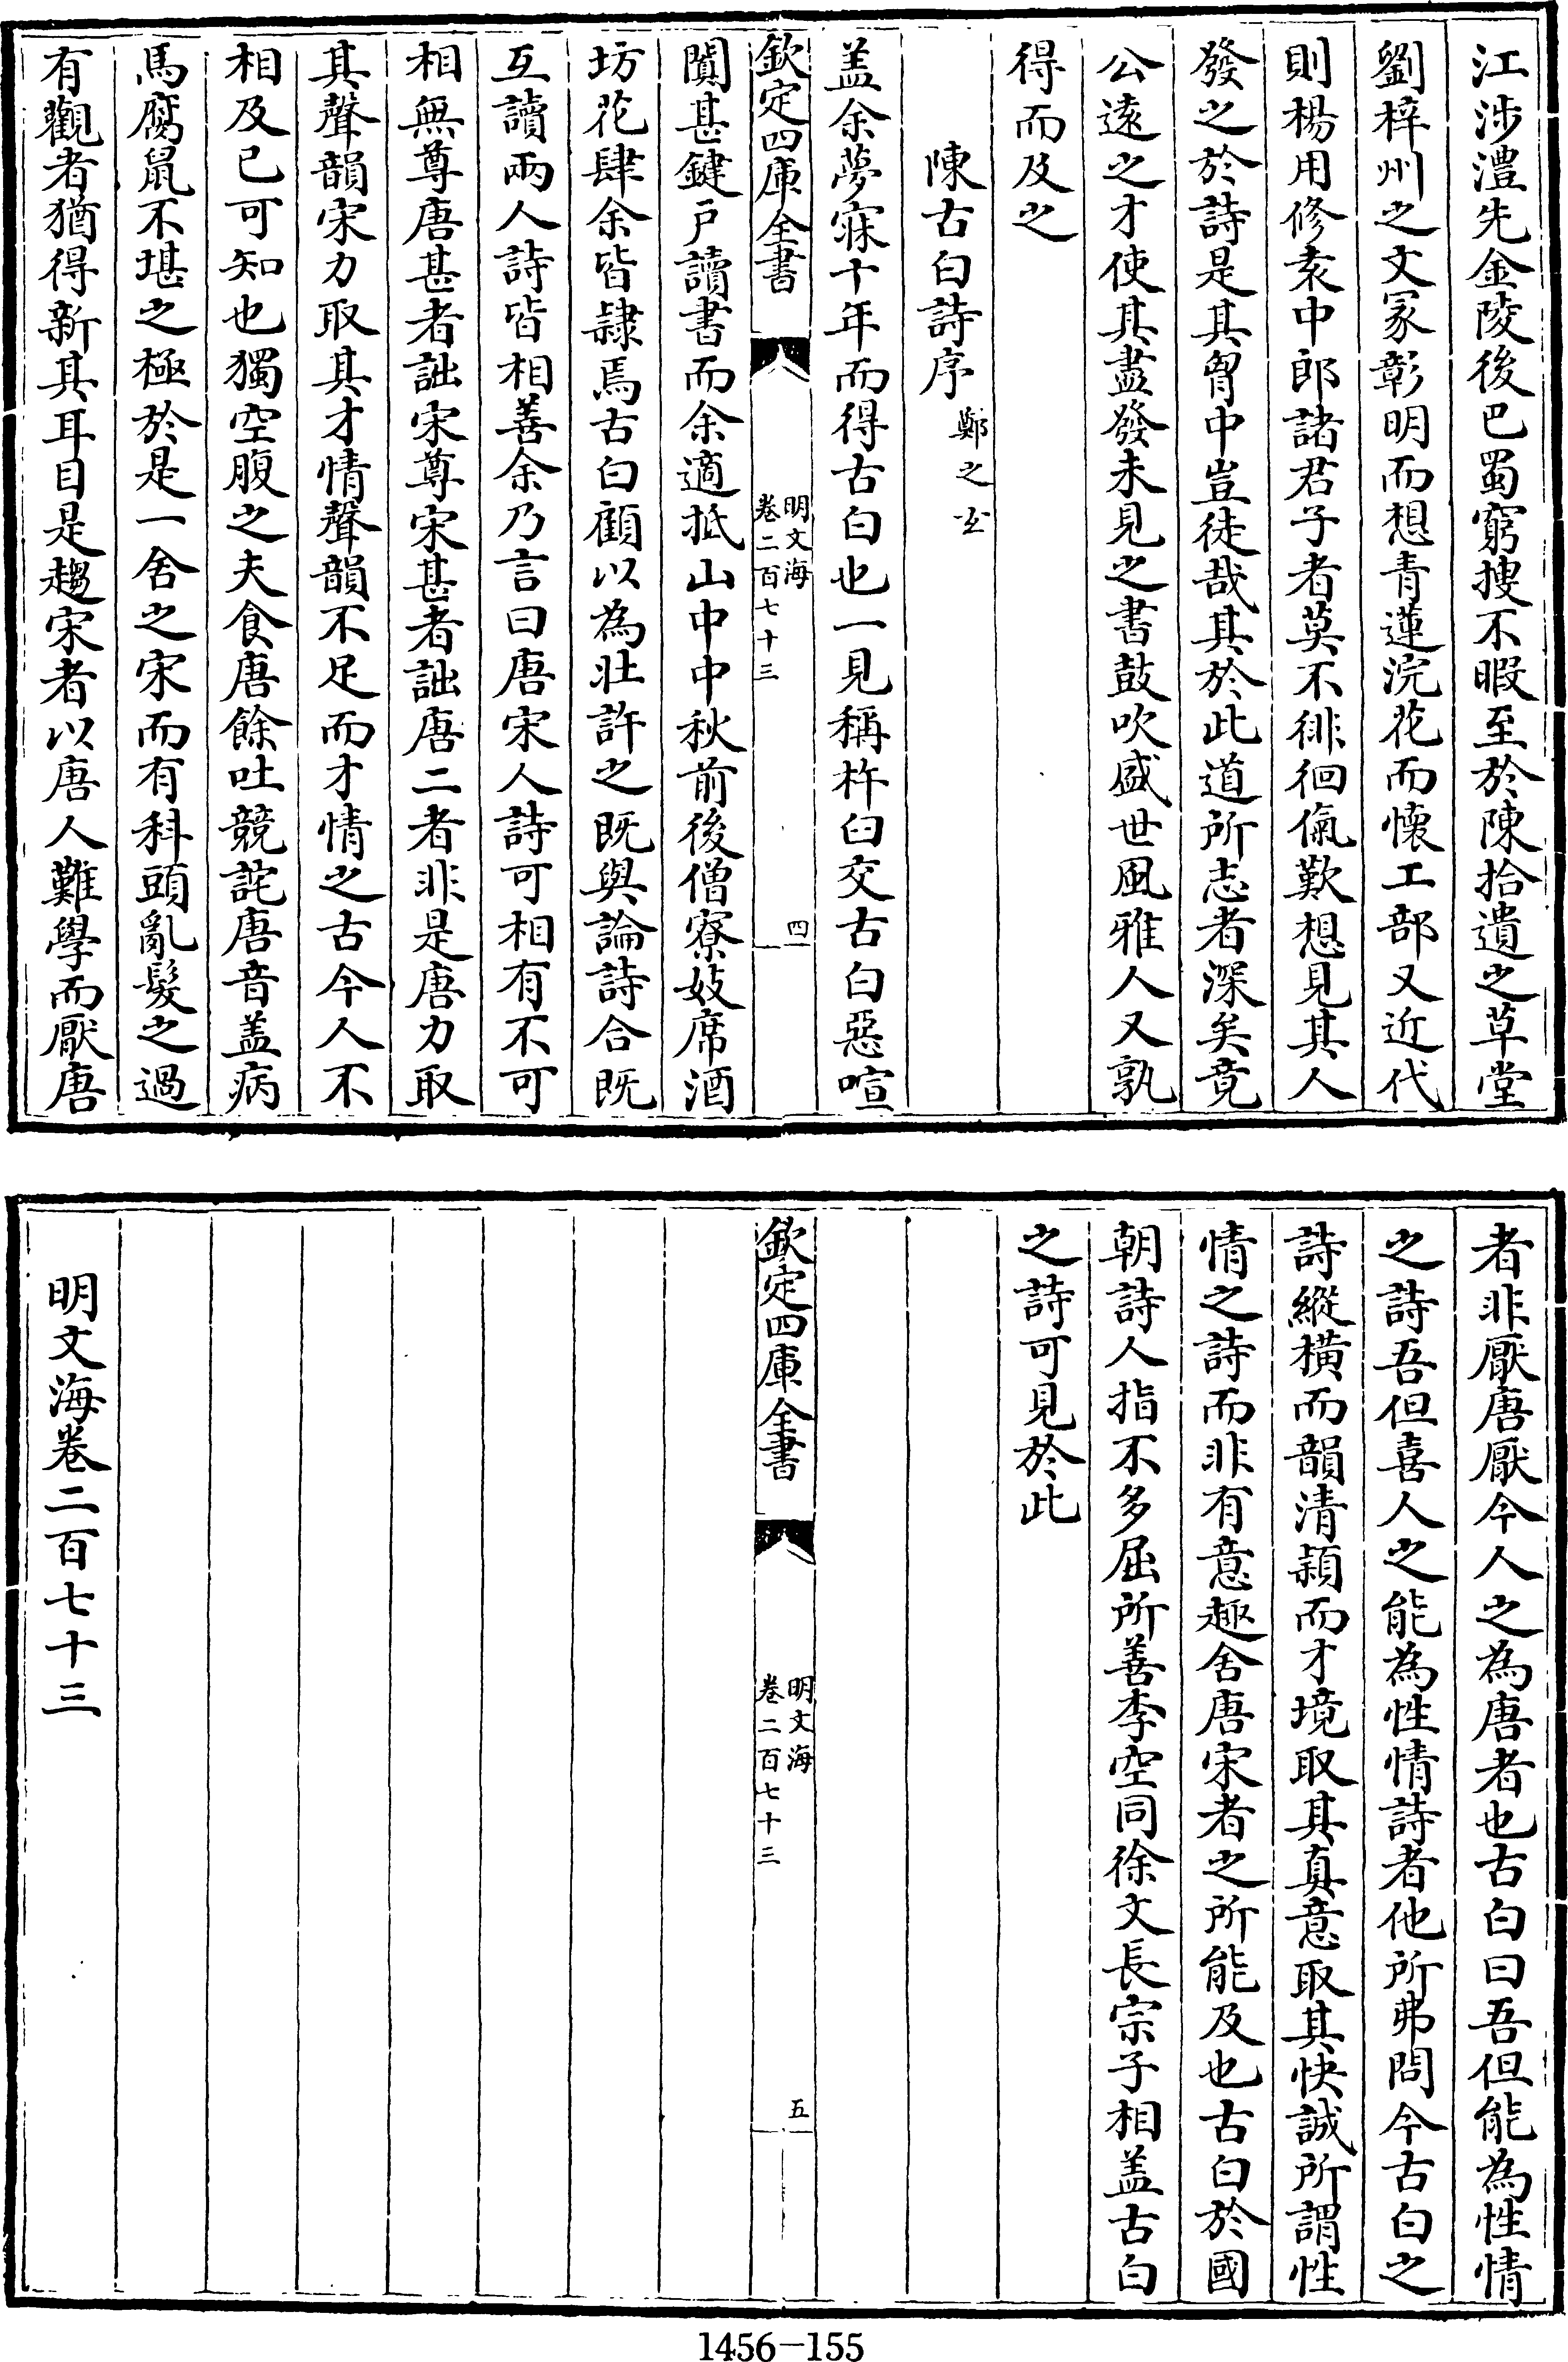 江涉澧先金陵後巴蜀窮搜不暇至於陳拾遺之草堂
劉梓州之文冢彰明而想青蓮浣花而懷工部又近代
則楊用修袁中郎諸君子者莫不徘徊氣歎想見其人
發之於詩是其胷中豈徒哉其於此道所志者深矣竟
公遠之才使其盡發未見之書鼓吹盛世風雅人又孰
得而及之
陳古白詩序鄭之玄
盖余夢寐十年而得古白也一見稱杵臼交古白惡喧
欽定四庫全書
明文海
卷二百七十三
四
闐甚鍵戸讀書而余適抵山中中秋前後僧寮妓席酒
坊花肆余皆隸焉古白顧以為壯許之既與論詩合既
互讀兩人詩皆相善余乃言曰唐宋人詩可相有不可
相無尊唐甚者詘宋尊宋甚者詘唐二者非是唐力取
其聲韻宋力取其才情聲韻不足而才情之古今人不
相及已可知也獨空腹之夫食唐餘吐競詫唐音盖病
馬腐鼠不堪之極於是一舍之宋而有科頭亂髮之過
有觀者猶得新其耳目是趨宋者以唐人難學而厭唐
者非厭唐厭今人之為唐者也古白曰吾但能為性情
之詩吾但喜人之能為性情詩者他所弗問今古白之
詩縱橫而韻清穎而才境取其真意取其快誠所謂性
情之詩而非有意趣舍唐宋者之所能及也古白於國
朝詩人指不多屈所善李空同徐文長宗子相盖古白
之詩可見於此
欽定四庫全書
明文海
卷二百七十三
五
明文海卷二百七十三
1456-155